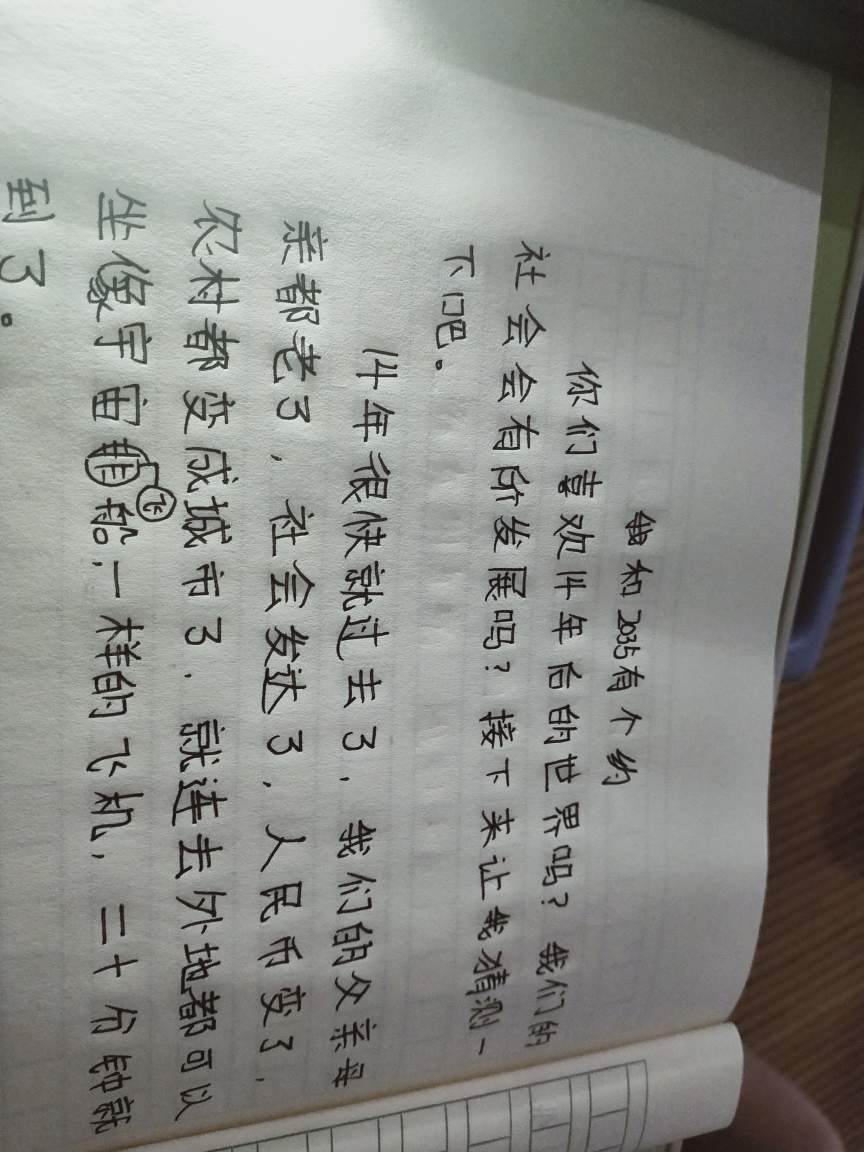 我和2035有个约
你们喜欢14年后的世界吗？我们的
社会会有所发展吗？接下来让我猜测一
下吧。
14年很快就过去了，我们的父亲母
亲都老了，社会发达了，人民币变了，
农村都变成城市了，就连去外地都可以
坐像宇宙飞船一样的飞机，二十分钟就
到了。